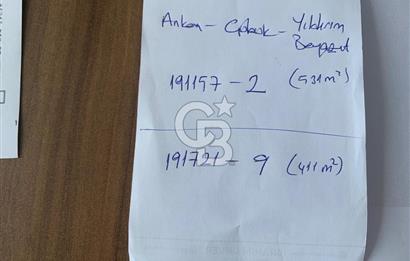 Ankara - Çubuk - Yıldırım
Beyazıt
191157 - 2 (531 m²)
CB
191721 - 9 (411 m²)